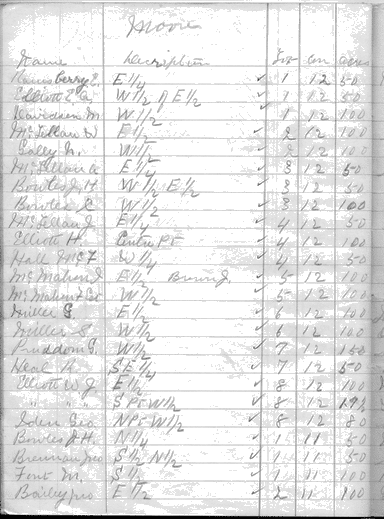 Moore
Name Description Lot Con Acres
Hansberry E. E 1/4 ✓ 1 12 50
Elliott E A W 1/2 of E 1/2 ✓ 1 12 50
Davidson M W 1/2 ✓ 1 12 100
McLellan W E 1/2 ✓ 2 12 100
Coley N. W 1/2 ✓ 2 12 100
McLellan A E 1/4 ✓ 3 12 50
Bowles J. H. W 1/2 E 1/2 ✓ 3 12 50
Bowles S W 1/2 ✓ 3 12 100
McLellan J E 1/4 ✓ 4 12 50
Elliott H. Centre Pt ✓ 4 12 100
Hall W 1/4 ✓ 4 12 50
McMahon J E 1/2 Brown J. ✓ 5 12 100
McMahon Geo W 1/2 ✓ 5 12 100
Miller S E 1/2 ✓ 6 12 100
Miller S W 1/2 ✓ 6 12 100
Pruddom S. W 1/2 ✓ 7 12 150
Heal R. S E 1/4 ✓ 7 12 50
Elliott W. J E 1/2 ✓ 8 12 100
" " " S Pt W 1/2 ✓ 8 12 19 1/2
Iden Geo N Pt W 1/2 ✓ 8 12 80
Bowles J. H. N 1/4 ✓ 1 11 50
Brennan Jno S 1/2 N 1/2 ✓ 1 11 50
Font M. S 1/2 ✓ 1 11 100
Bailey Jno E 1/2 ✓ 2 11 100